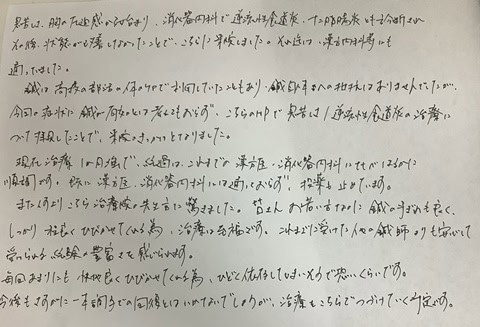 具合は、胸の圧迫感から始まり、消化器内科で逆流性食道炎、十二指腸炎と診断され
その後、状態が改善しなかったことで、こちらに来院しました。その途は、漢方内科等にも
通っていました。
鍼は高校の部活の体のケアで利用していたこともあり、鍼自体への抵抗はありませんでしたが、
今回の症状に鍼が有効とは考えておらず、こちらのHPで具合と逆流性食道炎の治療に
ついて拝見したことで、来院のきっかけとなりました。
現在治療1か月強で、経過は、これまでの漢方医、消化器内科に比べはるかに
順調です。既に漢方医、消化器内科には通っておらず、投薬も止めています。
また何よりこちら治療院の先生方に驚きました。皆さんお若い方なのに鍼のうまれも良く、
しっかり程良くひびかせてくれる為、治療は至極です。これまでに受けた他の鍼師よりも安心して
受けられる経験の豊富さを感じられます。
毎回あまりにも快く良くひびかせてくれる為、ひどく依存してしまいそうで恐いくらいです。
今後もさすがに一本調子での回復とはいかないでしょうが、治療をこちらでつづけていく予定です。